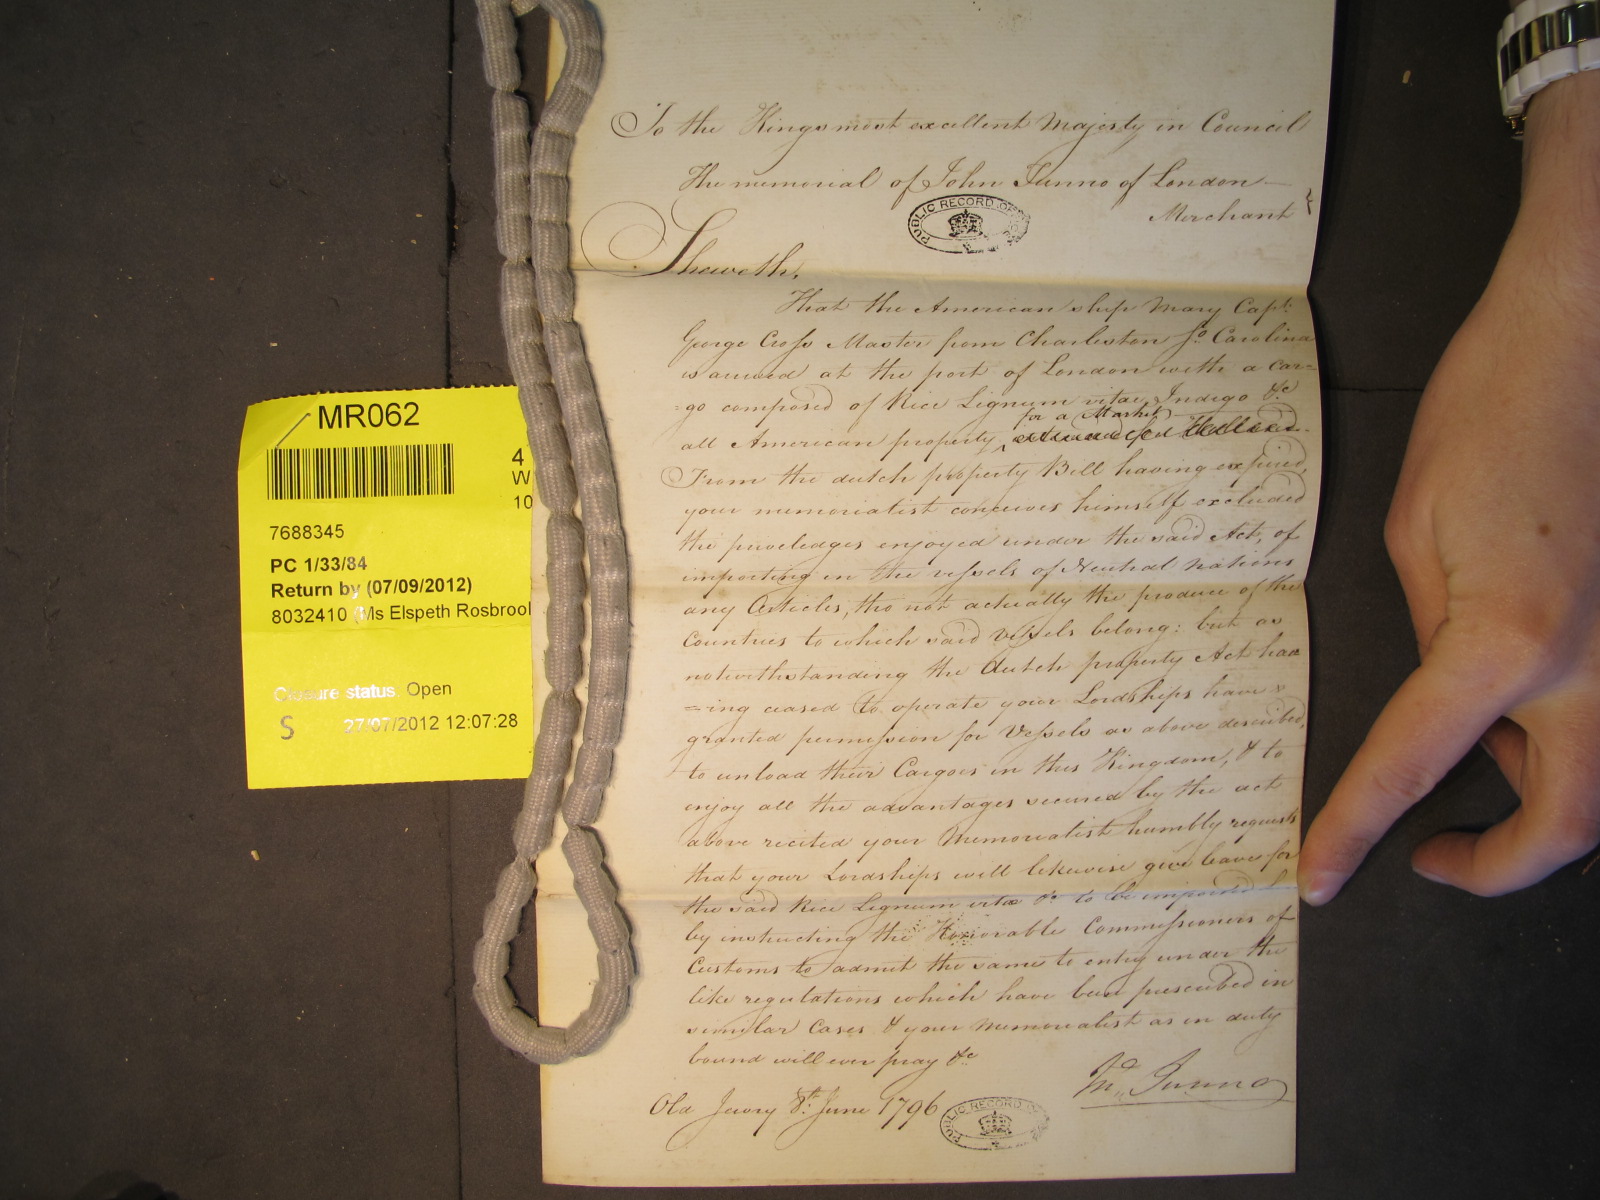 To the Kings most excellent Majesty in Council
The memorial of John Tunno of London
Merchant
PUBLIC RECORD OFFICE
Sheweth,
That the American ship Mary Capt.
George Cross Master from Charleston So. Carolina
is arrived at the port of London with a car=
=go composed of Rice Lignum vitae, Indigo &c
for a Market
all American property
From the dutch property Bill having expired,
your memorialist conceives himself excluded
the priveledges enjoyed under the said Act, of
importing in the vessels of Neutral Nations
any Articles, tho not actually the produce of the
Countries to which said Vessels belong: but as
notwithstanding the dutch property Act hav
=ing ceased to operate your Lordships have
granted permission for Vessels as above described,
to unload their Cargoes in this Kingdom, & to
enjoy all the advantages secured by the act
above recited your Memorialist humbly requests
that your Lordships will likewise give leave for
the said Rice Lignum vitae &c to be imported
by instructing the Honorable Commissioners of
Customs to admit the same to entry under the
like regulations which have been prescribed in
similar Cases & your Memorialist as in duty
bound will ever pray &c
Jn. Tunno
Old Jewry 8th. June 1796
PUBLIC RECORD
MR062
4
W
10
7688345
PC 1/33/84
Return by (07/09/2012)
8032410 (Ms Elspeth Rosbrool
Closure status: Open
S 27/07/2012 12:07:28